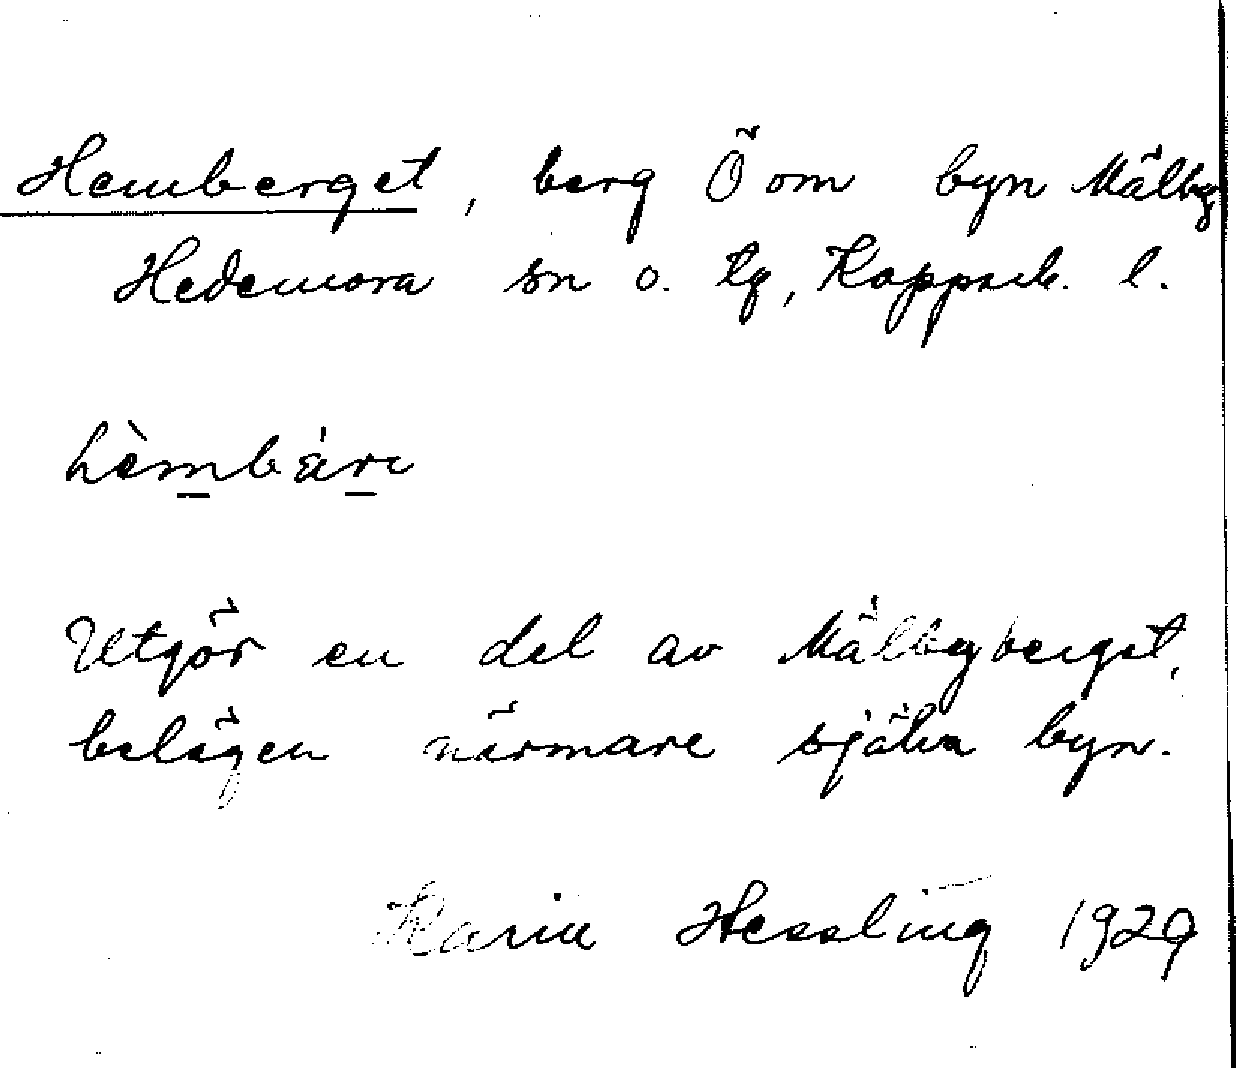 Hemberget, berg Ö om byn Mälby
Hedemora sn o. tg, Kopparb. l.
hèmbárı
Utgör en del av Mälbyberget,
belägen närmare själva byn.
Karin Hessling 1929